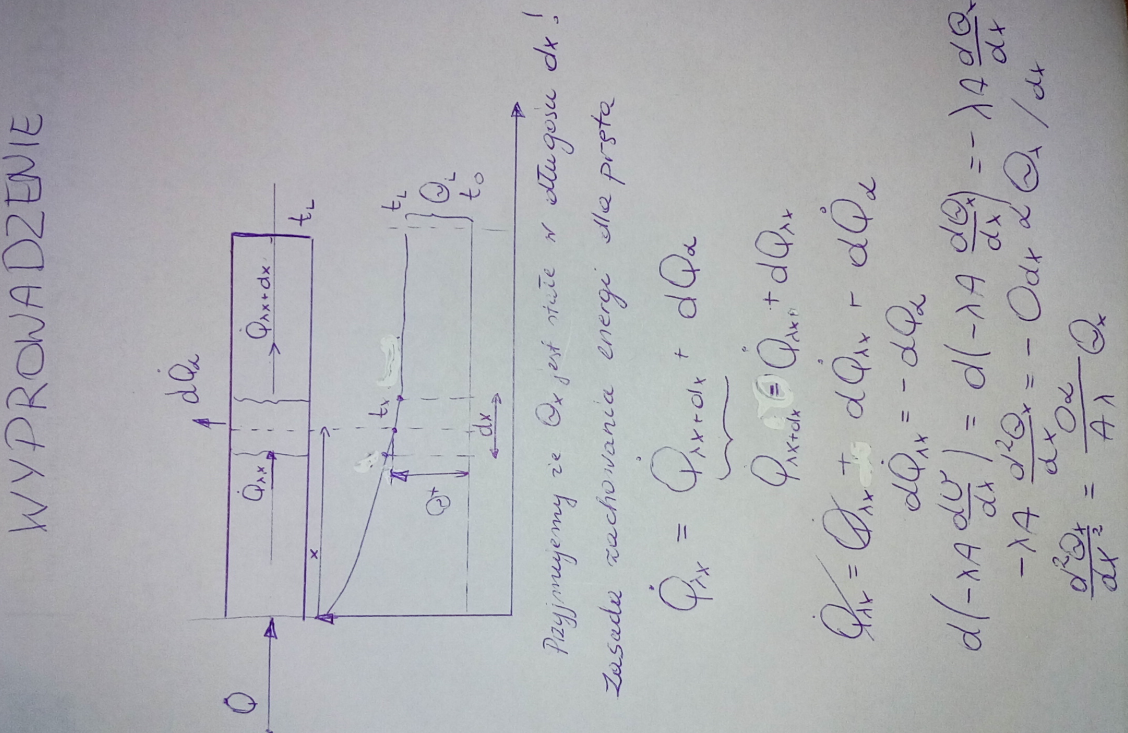 WYPROWADZENIE
Q̇
dQ̇α
Q̇λx
Q̇λx+dx
tL
x
tx
tL
Θx
ΘL
dx
to
Przyjmujemy że Θx jest stałe w długości dx!
Zasada zachowania energi dla pręta
Q̇λx = Q̇λx+dx + dQ̇α
Q̇λx+dx = Q̇λx + dQ̇λx
Q̇λx = Q̇λx + dQ̇λx + dQ̇α
dQ̇λx = -dQ̇α
d(-λA dϑ/dx) = d(-λA dΘx/dx) = -λA dΘx/dx
-λA d²Θx/dx = -Odx α Θx /dx
d²Θx/dx² = Oα/Aλ Θx